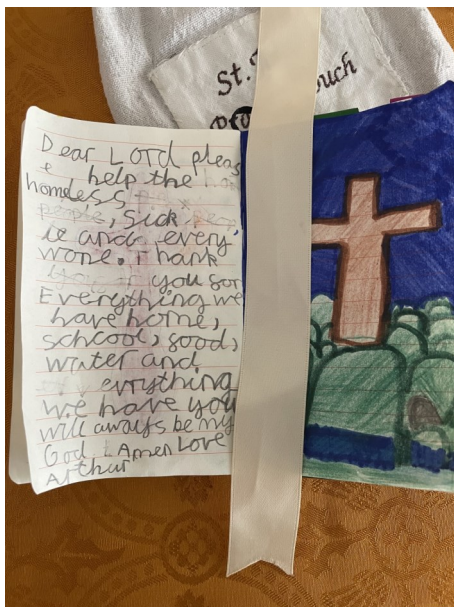 St.
ouch
Dear Lord pleas
e help the
homeless
people, sick peop
le and every
wone. Thank
you sor
Everything we
have home,
school, sood,
water and
evrything
we have you
will always be my
God. Amen Love
Arthur